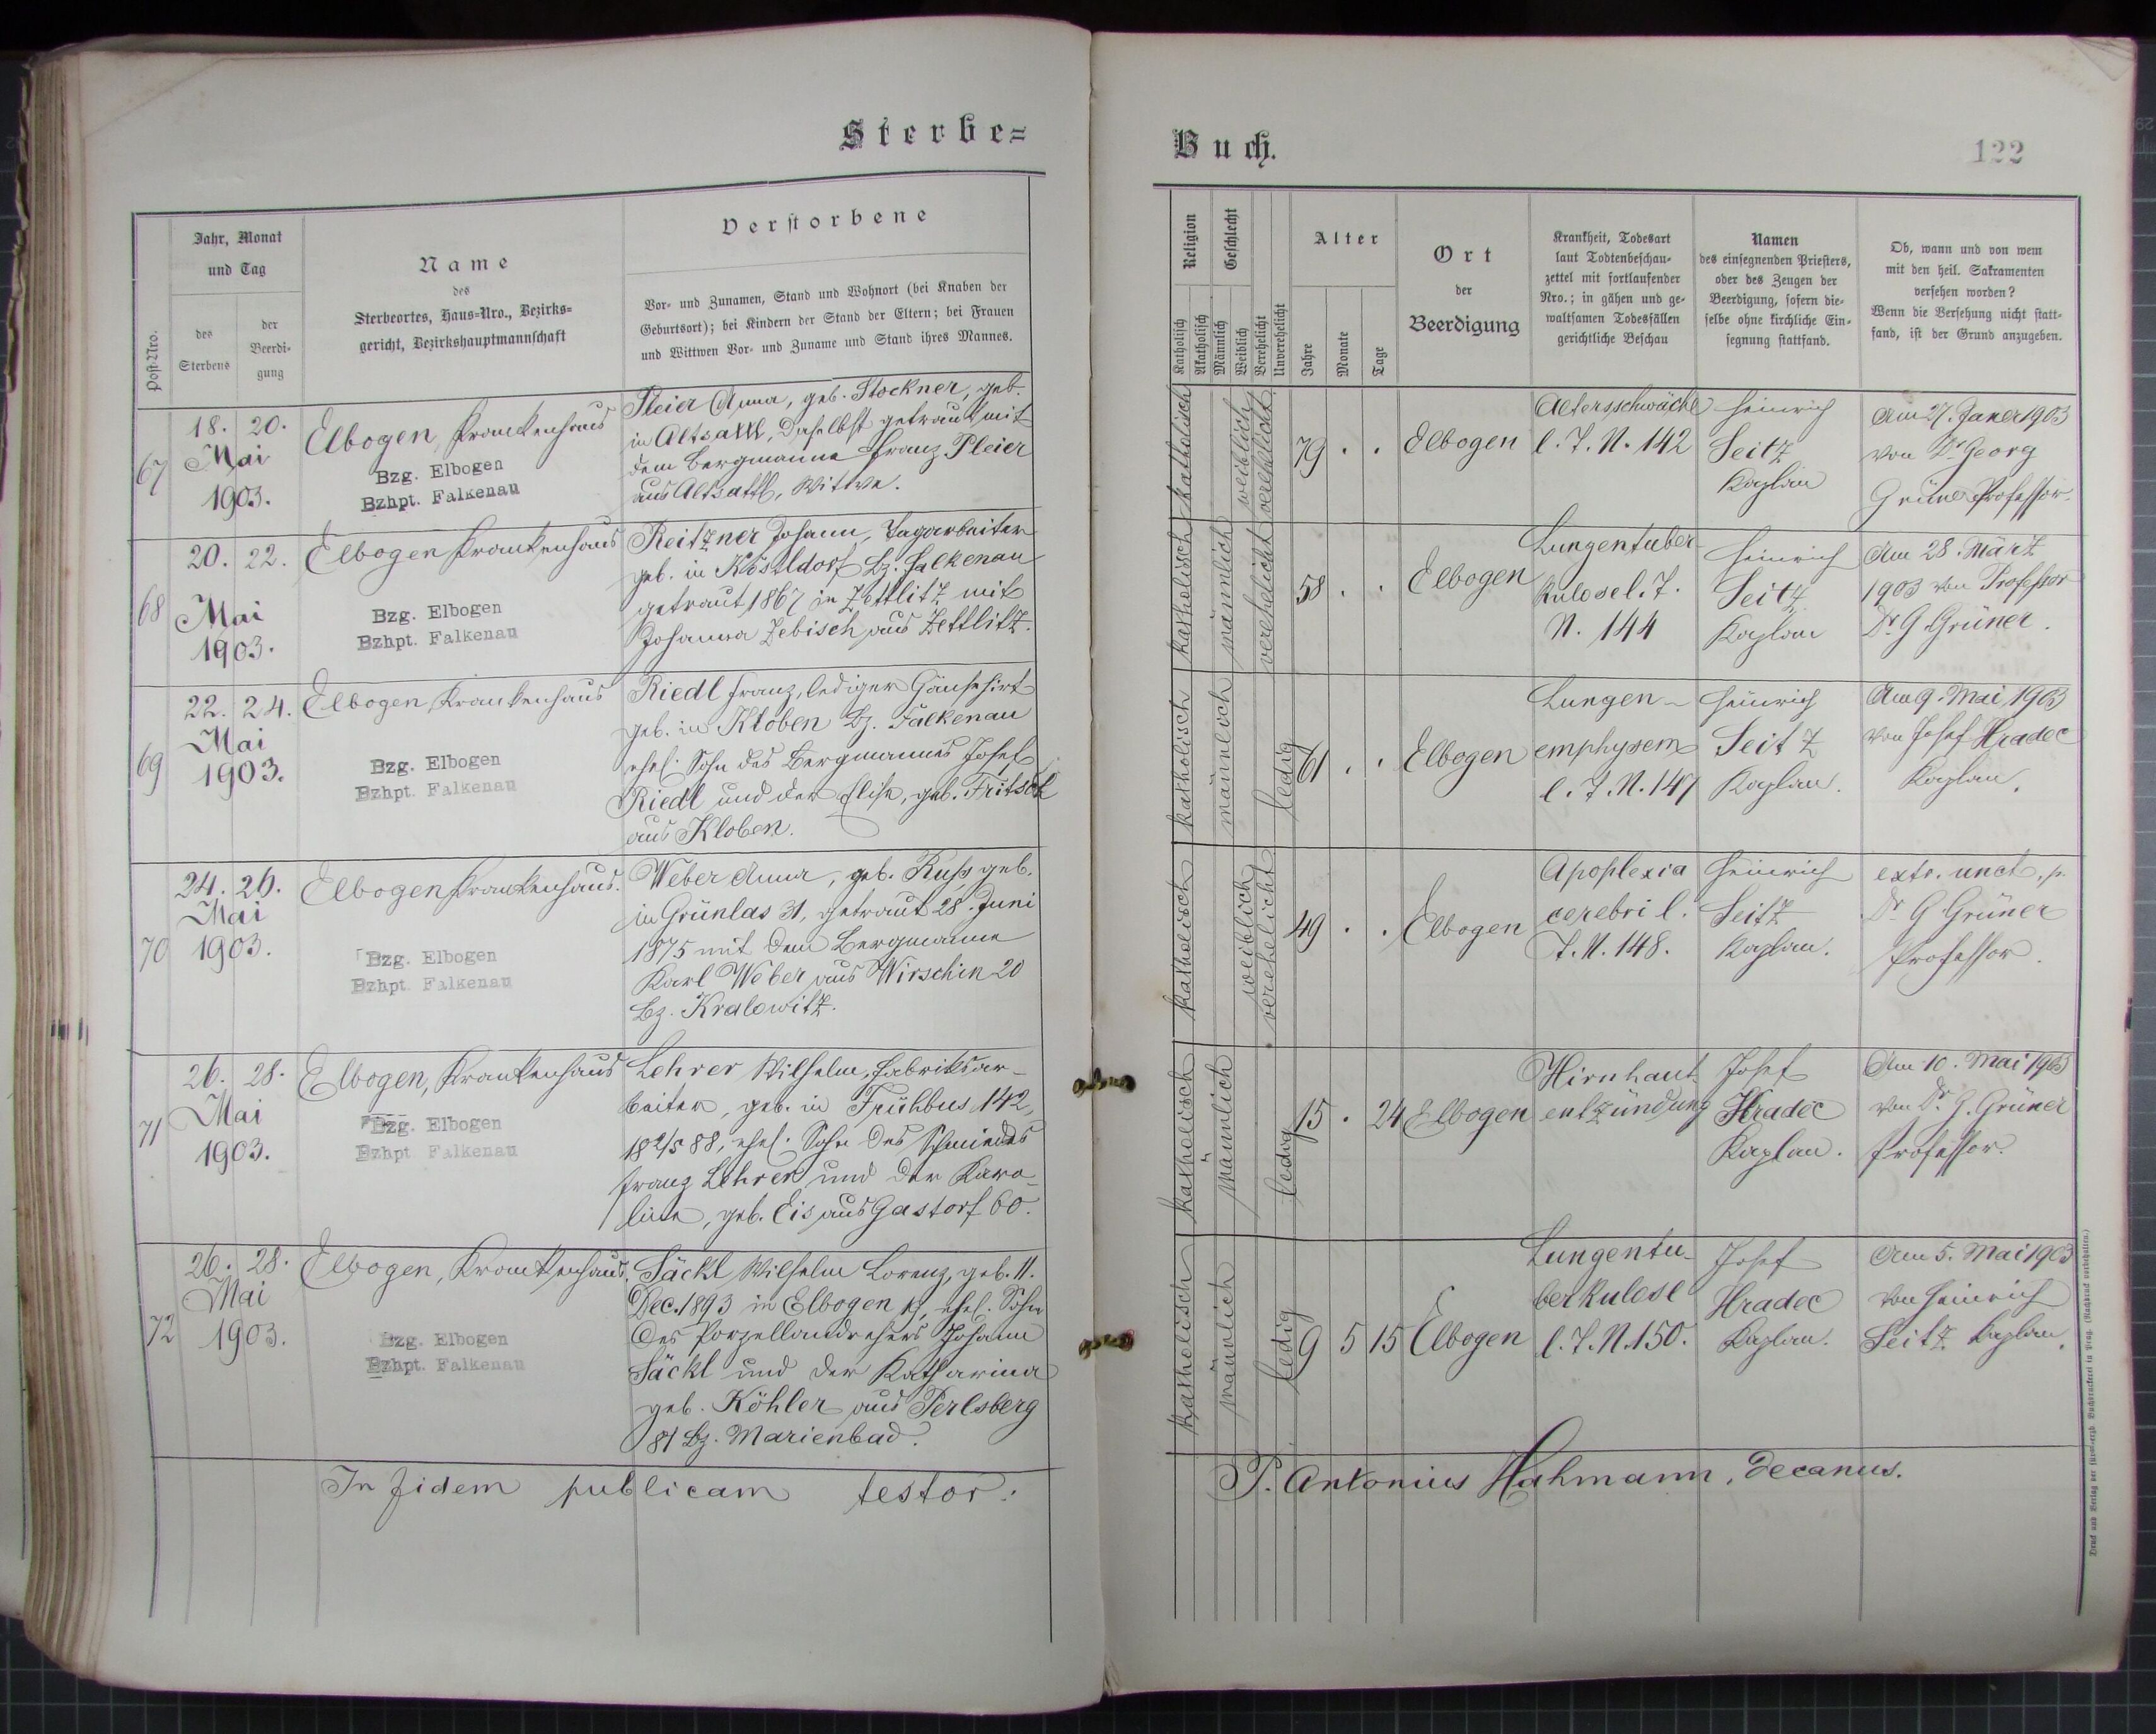 Sterbe=
Buch.
122
Post-Nro.
Jahr, Monat
und Tag
des
Sterbens
der
Beerdi-
gung
Name
des
Sterbeortes, Haus=Nro., Bezirks=
gericht, Bezirkshauptmannschaft
Verstorbene
Vor- und Zunamen, Stand und Wohnort (bei Knaben der
Geburtsort); bei Kindern der Stand der Eltern; bei Frauen
und Wittwen Vor- und Zuname und Stand ihres Mannes.
Religion
Katholisch
Akatholisch
Geschlecht
Männlich
Weiblich
Verehelicht
Unverehelicht
Alter
Jahre
Monate
Tage
Ort
der
Beerdigung
Krankheit, Todesart
laut Todtenbeschau-
zettel mit fortlaufender
Nro.; in gähen und ge-
waltsamen Todesfällen
gerichtliche Beschau
Namen
des einsegnenden Priesters,
oder des Zeugen der
Beerdigung, sofern die-
selbe ohne kirchliche Ein-
segnung stattfand.
Ob, wann und von wem
mit den heil. Sakramenten
versehen worden?
Wenn die Versehung nicht statt-
fand, ist der Grund anzugeben.
67
18. 20.
Mai
1903.
Elbogen, Krankenhaus
Bzg. Elbogen
Bzhpt. Falkenau
Pleier Anna, geb. Stockner, geb.
in Altsattl, daselbst getraut mit
dem Bergmanne Franz Pleier
aus Altsattl, Witwe.
katholisch
weiblich
verehelicht
79 . .
Elbogen
Altersschwäche
l. T. N. 142
Heinrich
Seitz
Kaplan
Am 27. Janer 1903
von Dr Georg
Grüner Professor.
68
20. 22.
Mai
1903.
Elbogen Krankenhaus
Bzg. Elbogen
Bzhpt. Falkenau
Reitzner Johann, Tagarbeiter
geb. in Kösteldorf Bz. Falkenau
getraut 1867 in Zettlitz mit
Johanna Zebisch aus Zettlitz.
katholisch
männlich
verehelicht
58 . .
Elbogen
Lungentuber-
kulose l. T.
N. 144
Heinrich
Seitz
Kaplan
Am 28. März
1903 von Professor
Dr G Grüner.
69
22. 24.
Mai
1903.
Elbogen, Krankenhaus
Bzg. Elbogen
Bzhpt. Falkenau
Riedl Franz, lediger Gänsehirt
geb. in Kloben Bz. Falkenau
ehel. Sohn des Bergmannes Josef
Riedl und der Elise, geb. Fritsch
aus Kloben.
katholisch
männlich
ledig
61 . .
Elbogen
Lungen-
emphysem
l. T. N. 147
Heinrich
Seitz
Kaplan.
Am 9. Mai 1903
von Josef Hradec
Kaplan.
70
24. 26.
Mai
1903.
Elbogen Krankenhaus.
Bzg. Elbogen
Bzhpt. Falkenau
Weber Anna, geb. Russ, geb.
in Grünlas 31, getraut 28. Juni
1875 mit dem Bergmanne
Karl Weber aus Wirschin 20
Bz. Kralowitz.
katholisch
weiblich
verehelicht
49 . .
Elbogen
Apoplexia
cerebri l.
T. N. 148.
Heinrich
Seitz
Kaplan.
extr. unct. p.
Dr G Grüner
Professor.
71
26. 28.
Mai
1903.
Elbogen, Krankenhaus
Bzg. Elbogen
Bzhpt Falkenau
Lehrer Wilhelm, Fabriksar-
beiter, geb. in Frühbus 142,
18 2/5 88, ehel. Sohn des Schmiedes
Franz Lehrer und der Karo-
line, geb. Eis aus Gastorf 60.
katholisch
männlich
ledig
15 . 24
Elbogen
Hirnhaut-
entzündung
Josef
Hradec
Kaplan.
Am 10. Mai 1903
von Dr. G. Grüner
Professor.
72
26. 28.
Mai
1903.
Elbogen, Krankenhaus.
Bzg. Elbogen
Bzhpt. Falkenau
Säckl Wilhelm Lorenz, geb. 11.
Dec. 1893 in Elbogen ehel. Sohn
des Porzellandrehers Johann
Säckl und der Katharina
geb. Köhler aus Perlsberg
81 Bz. Marienbad.
katholisch
männlich
ledig
9 5 15
Elbogen
Lungentu-
berkulose
l. T. N. 150.
Josef
Hradec
Kaplan.
Am 5. Mai 1903
von Heinrich
Seitz Kaplan.
In fidem publicam testor:
P. Antonius Hahmann, Decanus.